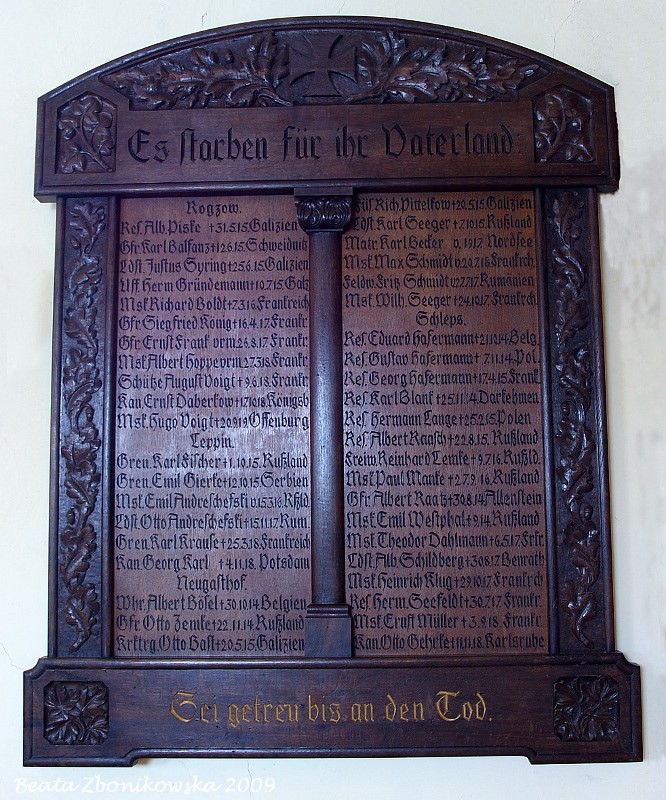 Es starben für ihr Vaterland
Rogzow.
Res. Alb. Piske +31.5.15. Galizien
Gfr. Karl Balfanz +12.6.15. Schweidnitz
Ldst. Justus Syring +25.6.15. Galizien
Uff. Herm. Gründemann +10.7.15. Galz.
Msk. Richard Boldt +7.3.16. Frankreich
Gfr. Siegfried König +16.4.17. Frankr.
Gfr. Ernst Frank vrm. 26.8.17. Frankr.
Msk. Albert Hoppe vrm. 27.3.18. Frankr.
Schütze August Voigt +9.6.18. Frankr.
Kan. Ernst Daberkow +17.10.18. Königsb.
Msk. Hugo Voigt +20.9.19. Offenburg
Leppin.
Gren. Karl Fischer +1.10.15. Rußland
Gren. Emil Gierke +12.10.15. Serbien
Msk. Emil Andreschefski v.15.3.16. Rßld.
Ldst. Otto Andreschefski +15.11.17. Rum.
Gren. Karl Krause +25.3.18. Frankreich
Kan. Georg Karl +4.11.18. Potsdam
Neugasthof.
Whr. Albert Bösel +30.10.14. Belgien
Gfr. Otto Zemke +22.11.14. Rußland
Krktrg. Otto Bast +20.5.15. Galizien
Füs. Rich. Pittelkow +20.5.15. Galizien
Ldst. Karl Seeger +7.10.15. Rußland
Matr. Karl Becker v. 1917. Nordsee
Msk. Max Schmidt v.20.7.18. Frankrch.
Feldw. Fritz Schmidt v.27.7.17. Rumänien
Msk. Wilh. Seeger +24.10.17. Frankrch.
Schleps.
Res. Eduard Hafermann +21.10.14. Belg.
Res. Gustav Hafermann +7.11.14. Pol.
Res. Georg Hafermann +17.4.15. Frank.
Res. Karl Blank +25.11.14. Darkehmen
Res. Hermann Lange +25.2.15. Polen
Res. Albert Raasch +22.8.15. Rußland
Freiw. Reinhard Lemke +9.7.16. Rußld.
Msk. Paul Manke +27.9.16. Rußland
Gfr. Albert Raatz +30.8.14. Allenstein
Msk. Emil Westphal +9.14. Rußland
Msk. Theodor Dahlmann +16.5.17. Frkr.
Ldst. Alb. Schildberg +30.8.17. Benrath
Msk. Heinrich Klug +29.10.17. Frankrch.
Res. Herm. Seefeldt +30.7.17. Frankr.
Msk. Ernst Müller +3.9.18. Frankr.
Kan. Otto Gehrke +11.11.18. Karlsruhe
Sei getreu bis an den Tod.
Beata Zbonikowska 2009